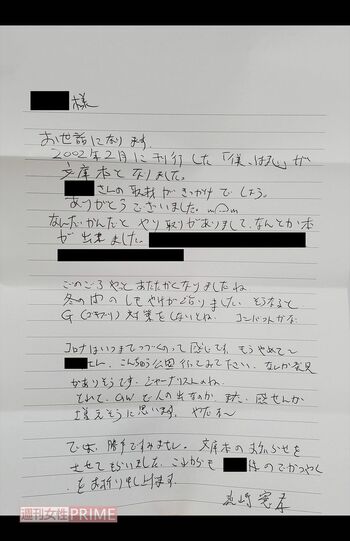 様
お世話になります。
2002年2月に刊行した「僕はが
文庫本となりました。
さんの取材がきっかけでしょう。
ありがとうございました。m(_)m
なんだかんだとやり取りがありまして、なんとか本
が出来ました。
このごろやっとあたたかくなりましたね
冬の間のしもやけが治りました。そうなると
G(ゴキブリ)対策をしないとね。コンバットかな
コロナはいつまでつづくのって感じです。もうやめて〜
さん、こんちゅう公園に行ってみて下さい。なんか発見
がありそうです。ジャーナリストのね。
それで、GWで人の出なのか、また、感せんが
増えそうに思います。やだネ〜
では、勝手ですみません。文庫本のお知らせを
させてもらいました。これからも 様のごかつやく
をお祈り申し上げます。
週刊女性PRIME